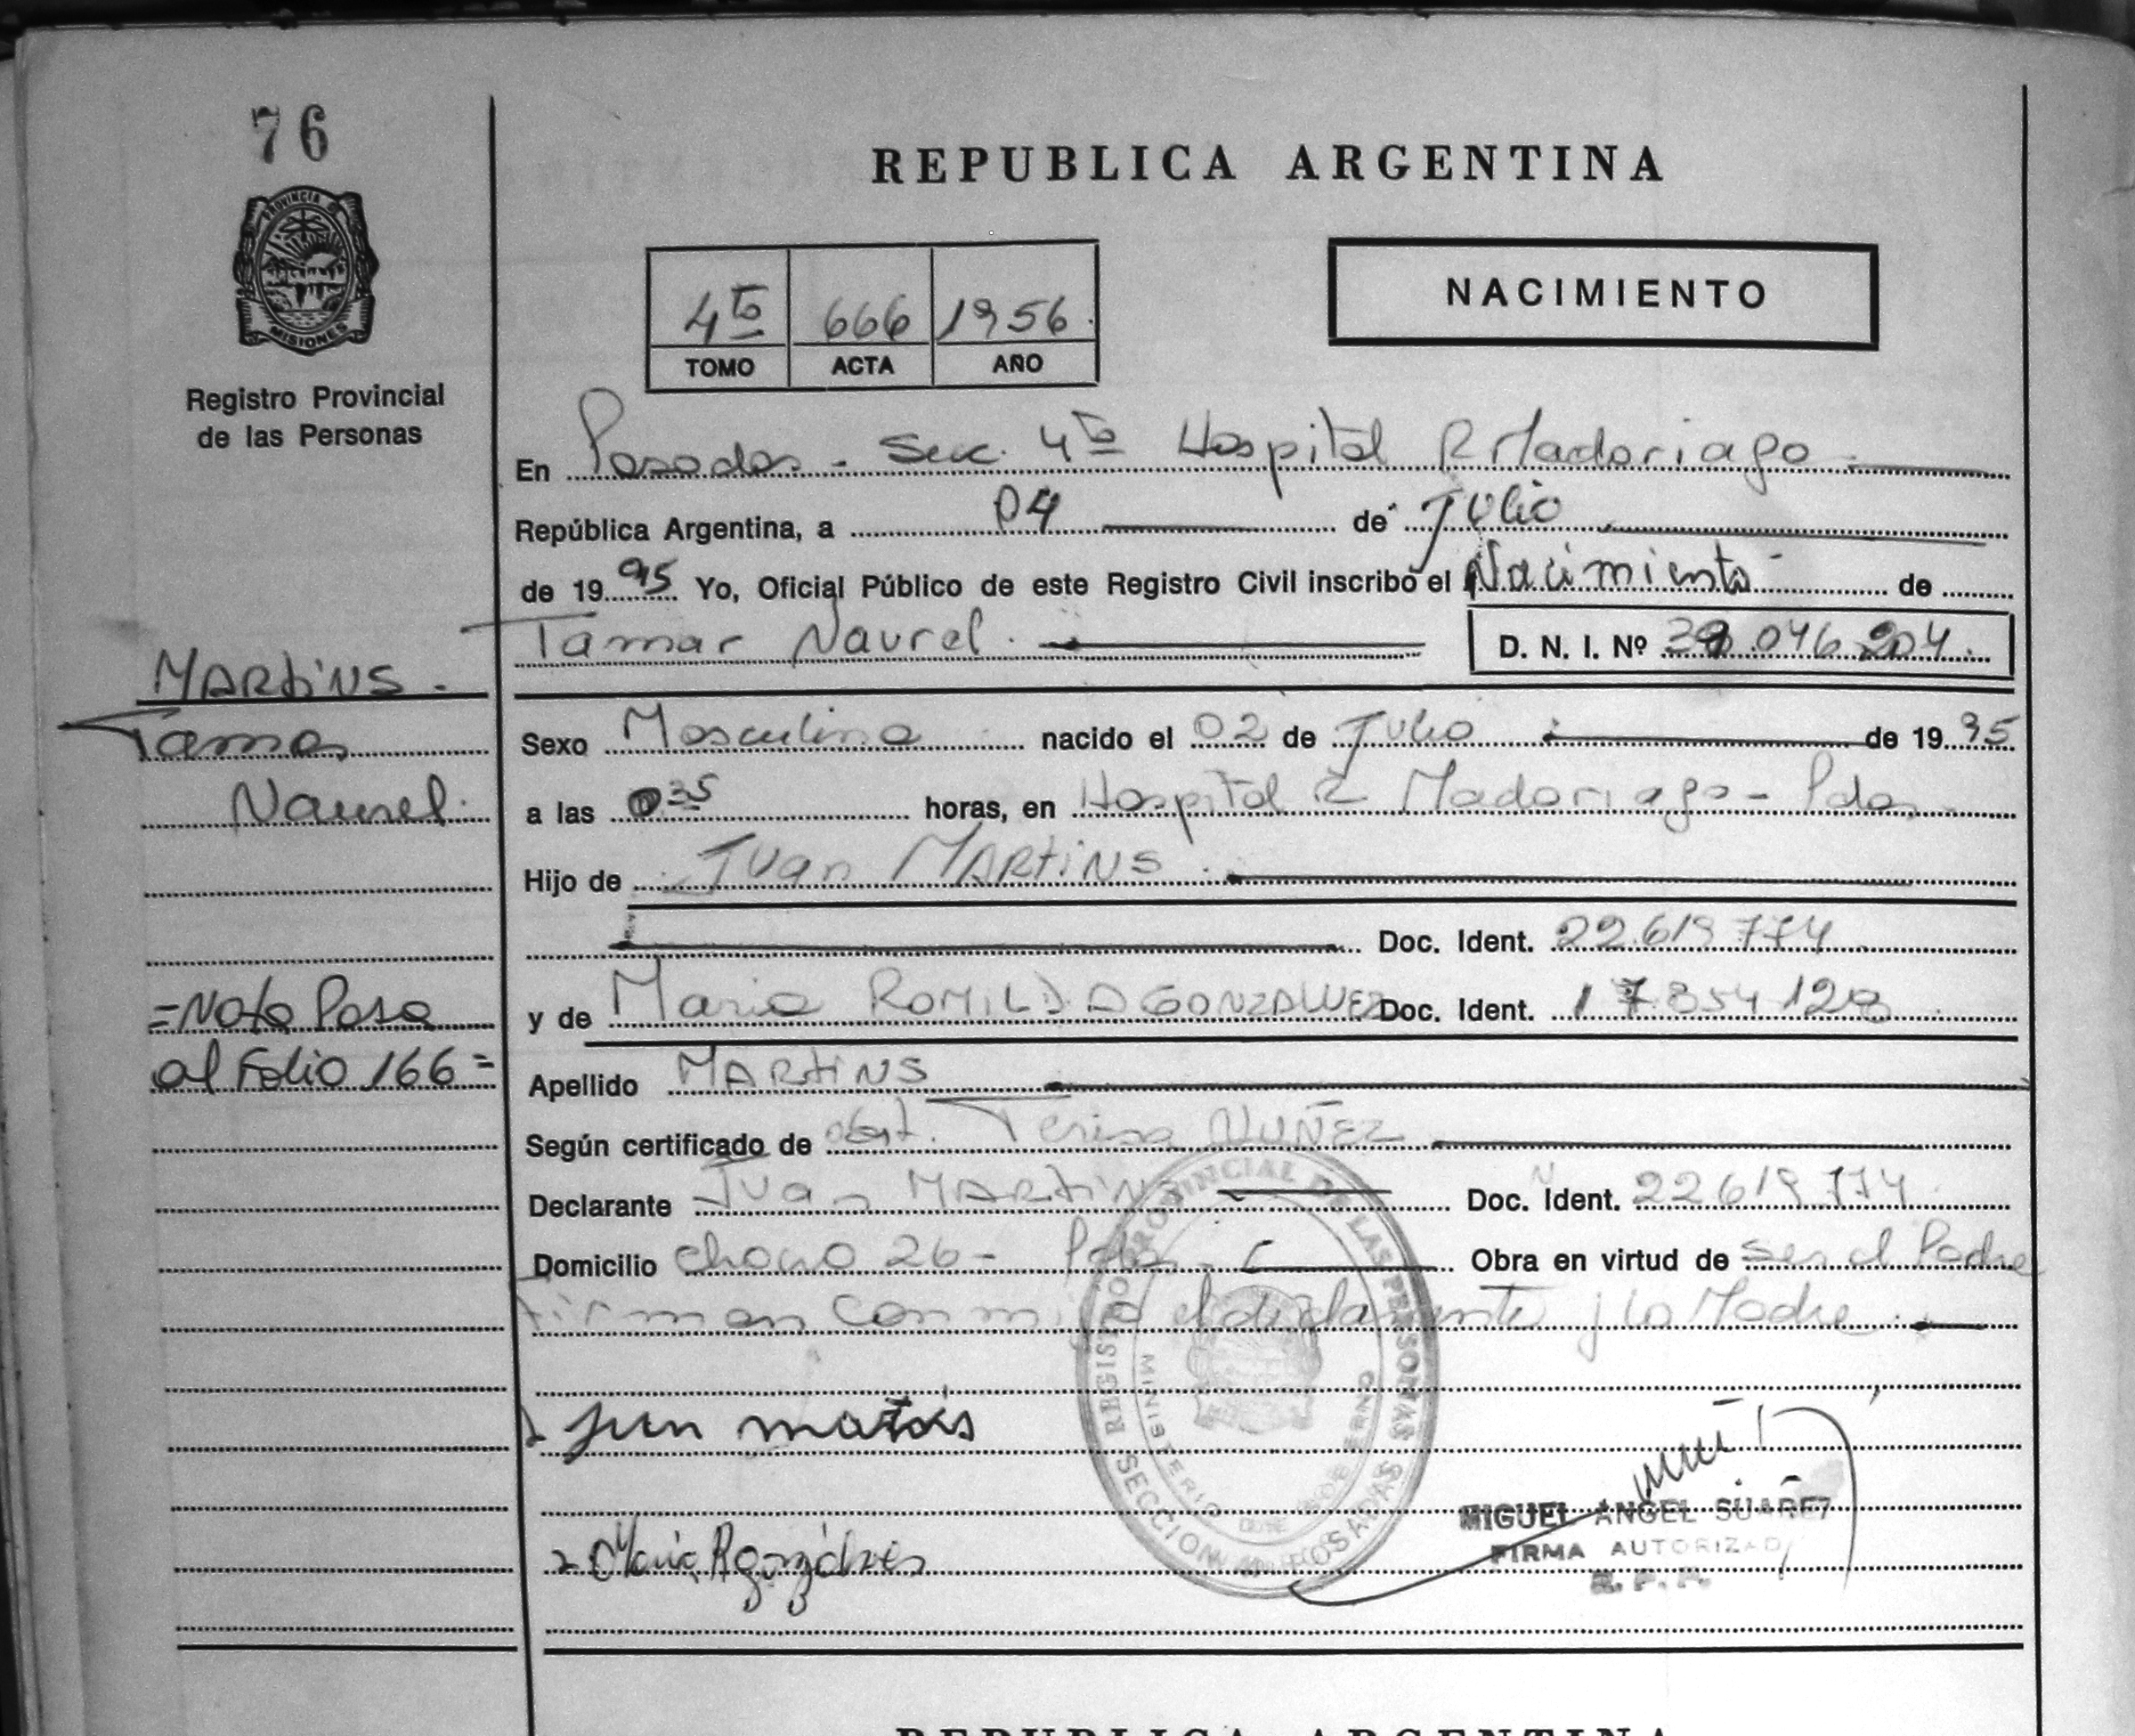 76
REPUBLICA ARGENTINA
PROVINCIA DE
MISIONES
Registro Provincial
de las Personas
4to 666 1956
TOMO ACTA AÑO
NACIMIENTO
En Posadas - Sec. 4ta Hospital R Madariaga
República Argentina, a 04 de Julio
de 1995 Yo, Oficial Público de este Registro Civil inscribo el Nacimiento de
Tamar Naurel. D. N. I. Nº 39.046.204.
MARTINS -
Tamar
Naurel.
Sexo Masculino nacido el 02 de Julio de 1995
a las 0 35 horas, en Hospital R Madariaga - Pdas
Hijo de Juan MARTINS
Doc. Ident. 22.619.774
y de Maria ROMILDA GONZALVEZ Doc. Ident. 17.854.128
=Nota Pasa
al Folio 166=
Apellido MARTINS
Según certificado de obst. Teresa NUÑEZ
Declarante Juan MARTINS Doc. Ident. 22.619.774
Domicilio Chaco 26 - Pdas Obra en virtud de ser el Padre
Firman conmigo el declarante y la Madre
REGISTRO PROVINCIAL DE LAS PERSONAS
MINISTERIO DE GOBIERNO
SECCION POSADAS
MIGUEL ANGEL SUAREZ
FIRMA AUTORIZADA
R. P. P.
REPUBLICA ARGENTINA